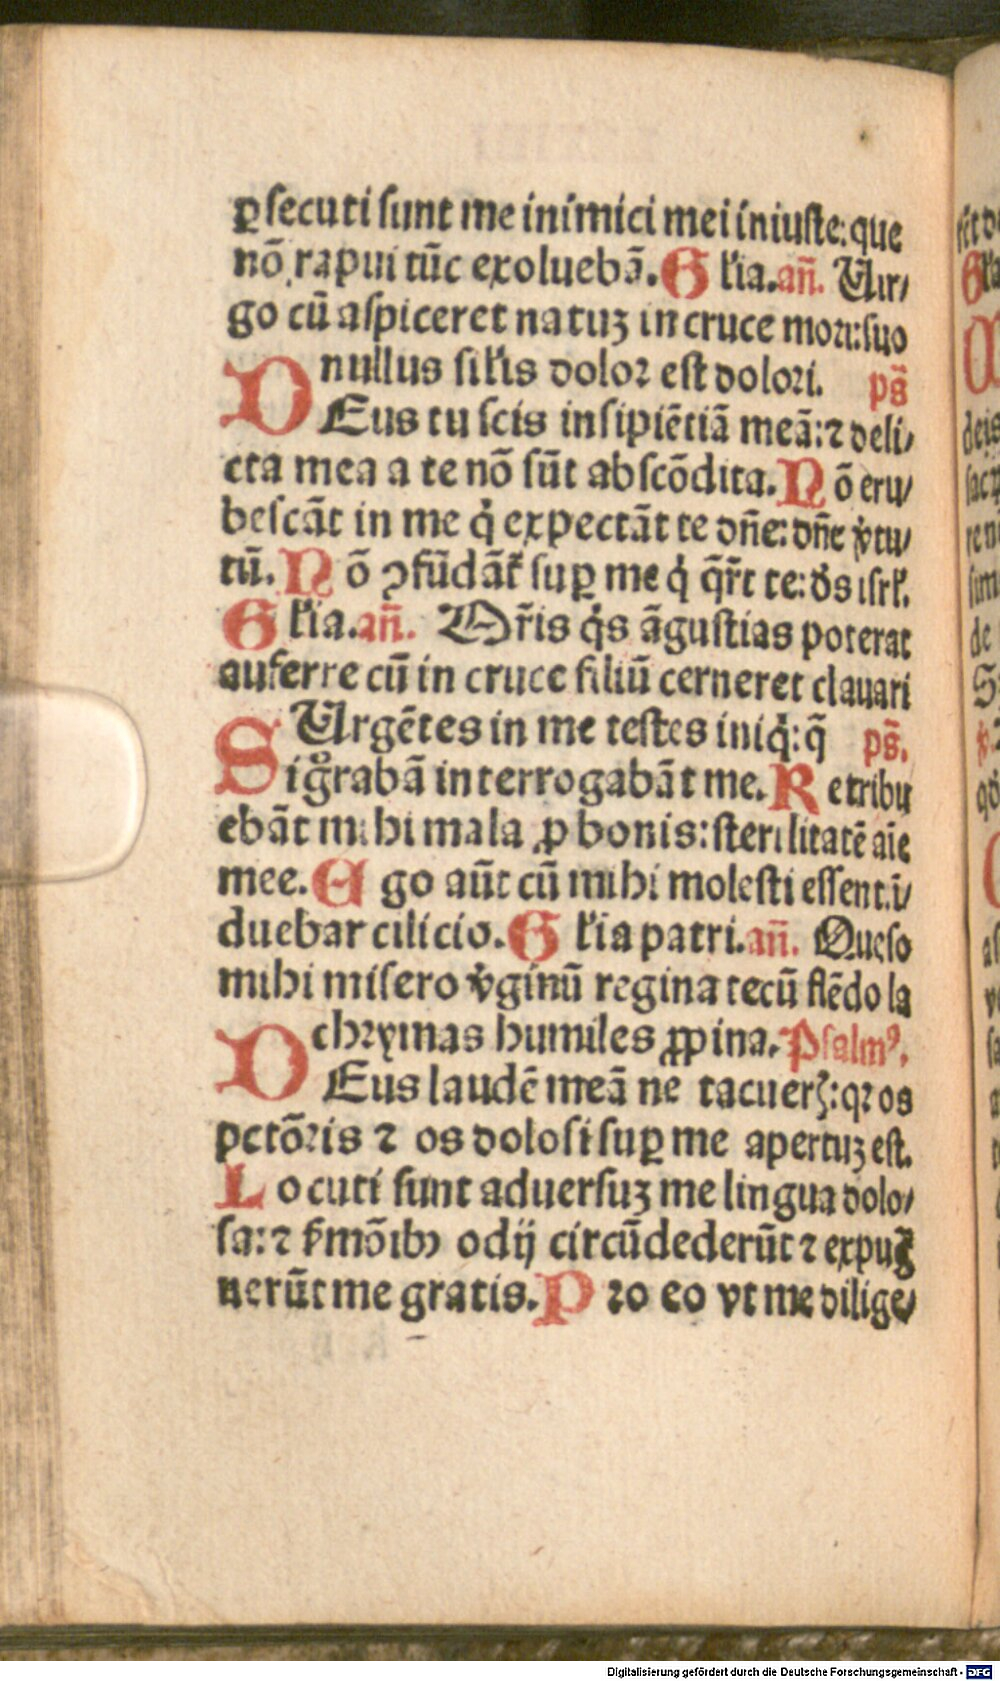 ꝑſecuti ſunt me inimici mei iniuſte: que
nō rapui tūc exoluebā. Gl'ia. añ. Uir/
go cū aſpiceret natuꝫ in cruce mori: ſuo
nullus ſil'is dolor eſt dolori. pſ̄
DEus tu ſcis inſipiētiā meā: ⁊ deli/
cta mea a te nō ſūt abſcōdita. Nō eru/
beſcāt in me q̇ expectāt te dñe: dñe v̇tu/
tū. Nō ꝯfūdāt᷑ ſuꝑ me q̇ q̄r̄t te: d̄s iſrl'.
Gl'ia. añ. Or̄is q̇s āguſtias poterat
auferre cū in cruce filiū cerneret clauari
SUrgētes in me teſtes iniq̇: q̄ pſ̄.
igͦrabā interrogabāt me. Retribu
ebāt mihi mala ꝓ bonis: ſterilitatē aīe
mee. Ego aūt cū mihi moleſti eſſent. ī/
duebar cilicio. Gl'ia patri. añ. Queſo
mihi miſero v̇ginū regina tecū flēdo la
chrymas humiles ꝓpina. Pſalmꝰ.
DEus laudē meā ne tacuerꝭ: qꝛ os
pctōris ⁊ os doloſi ſuꝑ me apertuꝫ eſt.
Locuti ſunt aduerſuꝫ me lingua dolo/
ſa: ⁊ ẜmōibꝰ odij circūdederūt ⁊ expug
nerūt me gratis. Pro eo vt me dilige/
Digitalisierung gefördert durch die Deutsche Forschungsgemeinschaft - DFG